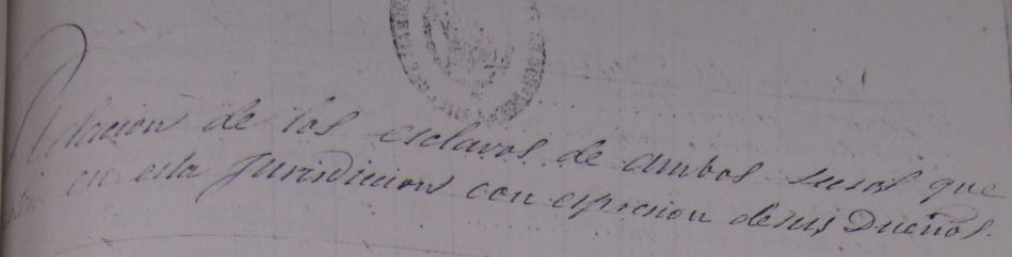 Relacion de los esclavos de ambos sexos que
en esta Jurisdiccion con espresion de sus Dueños.